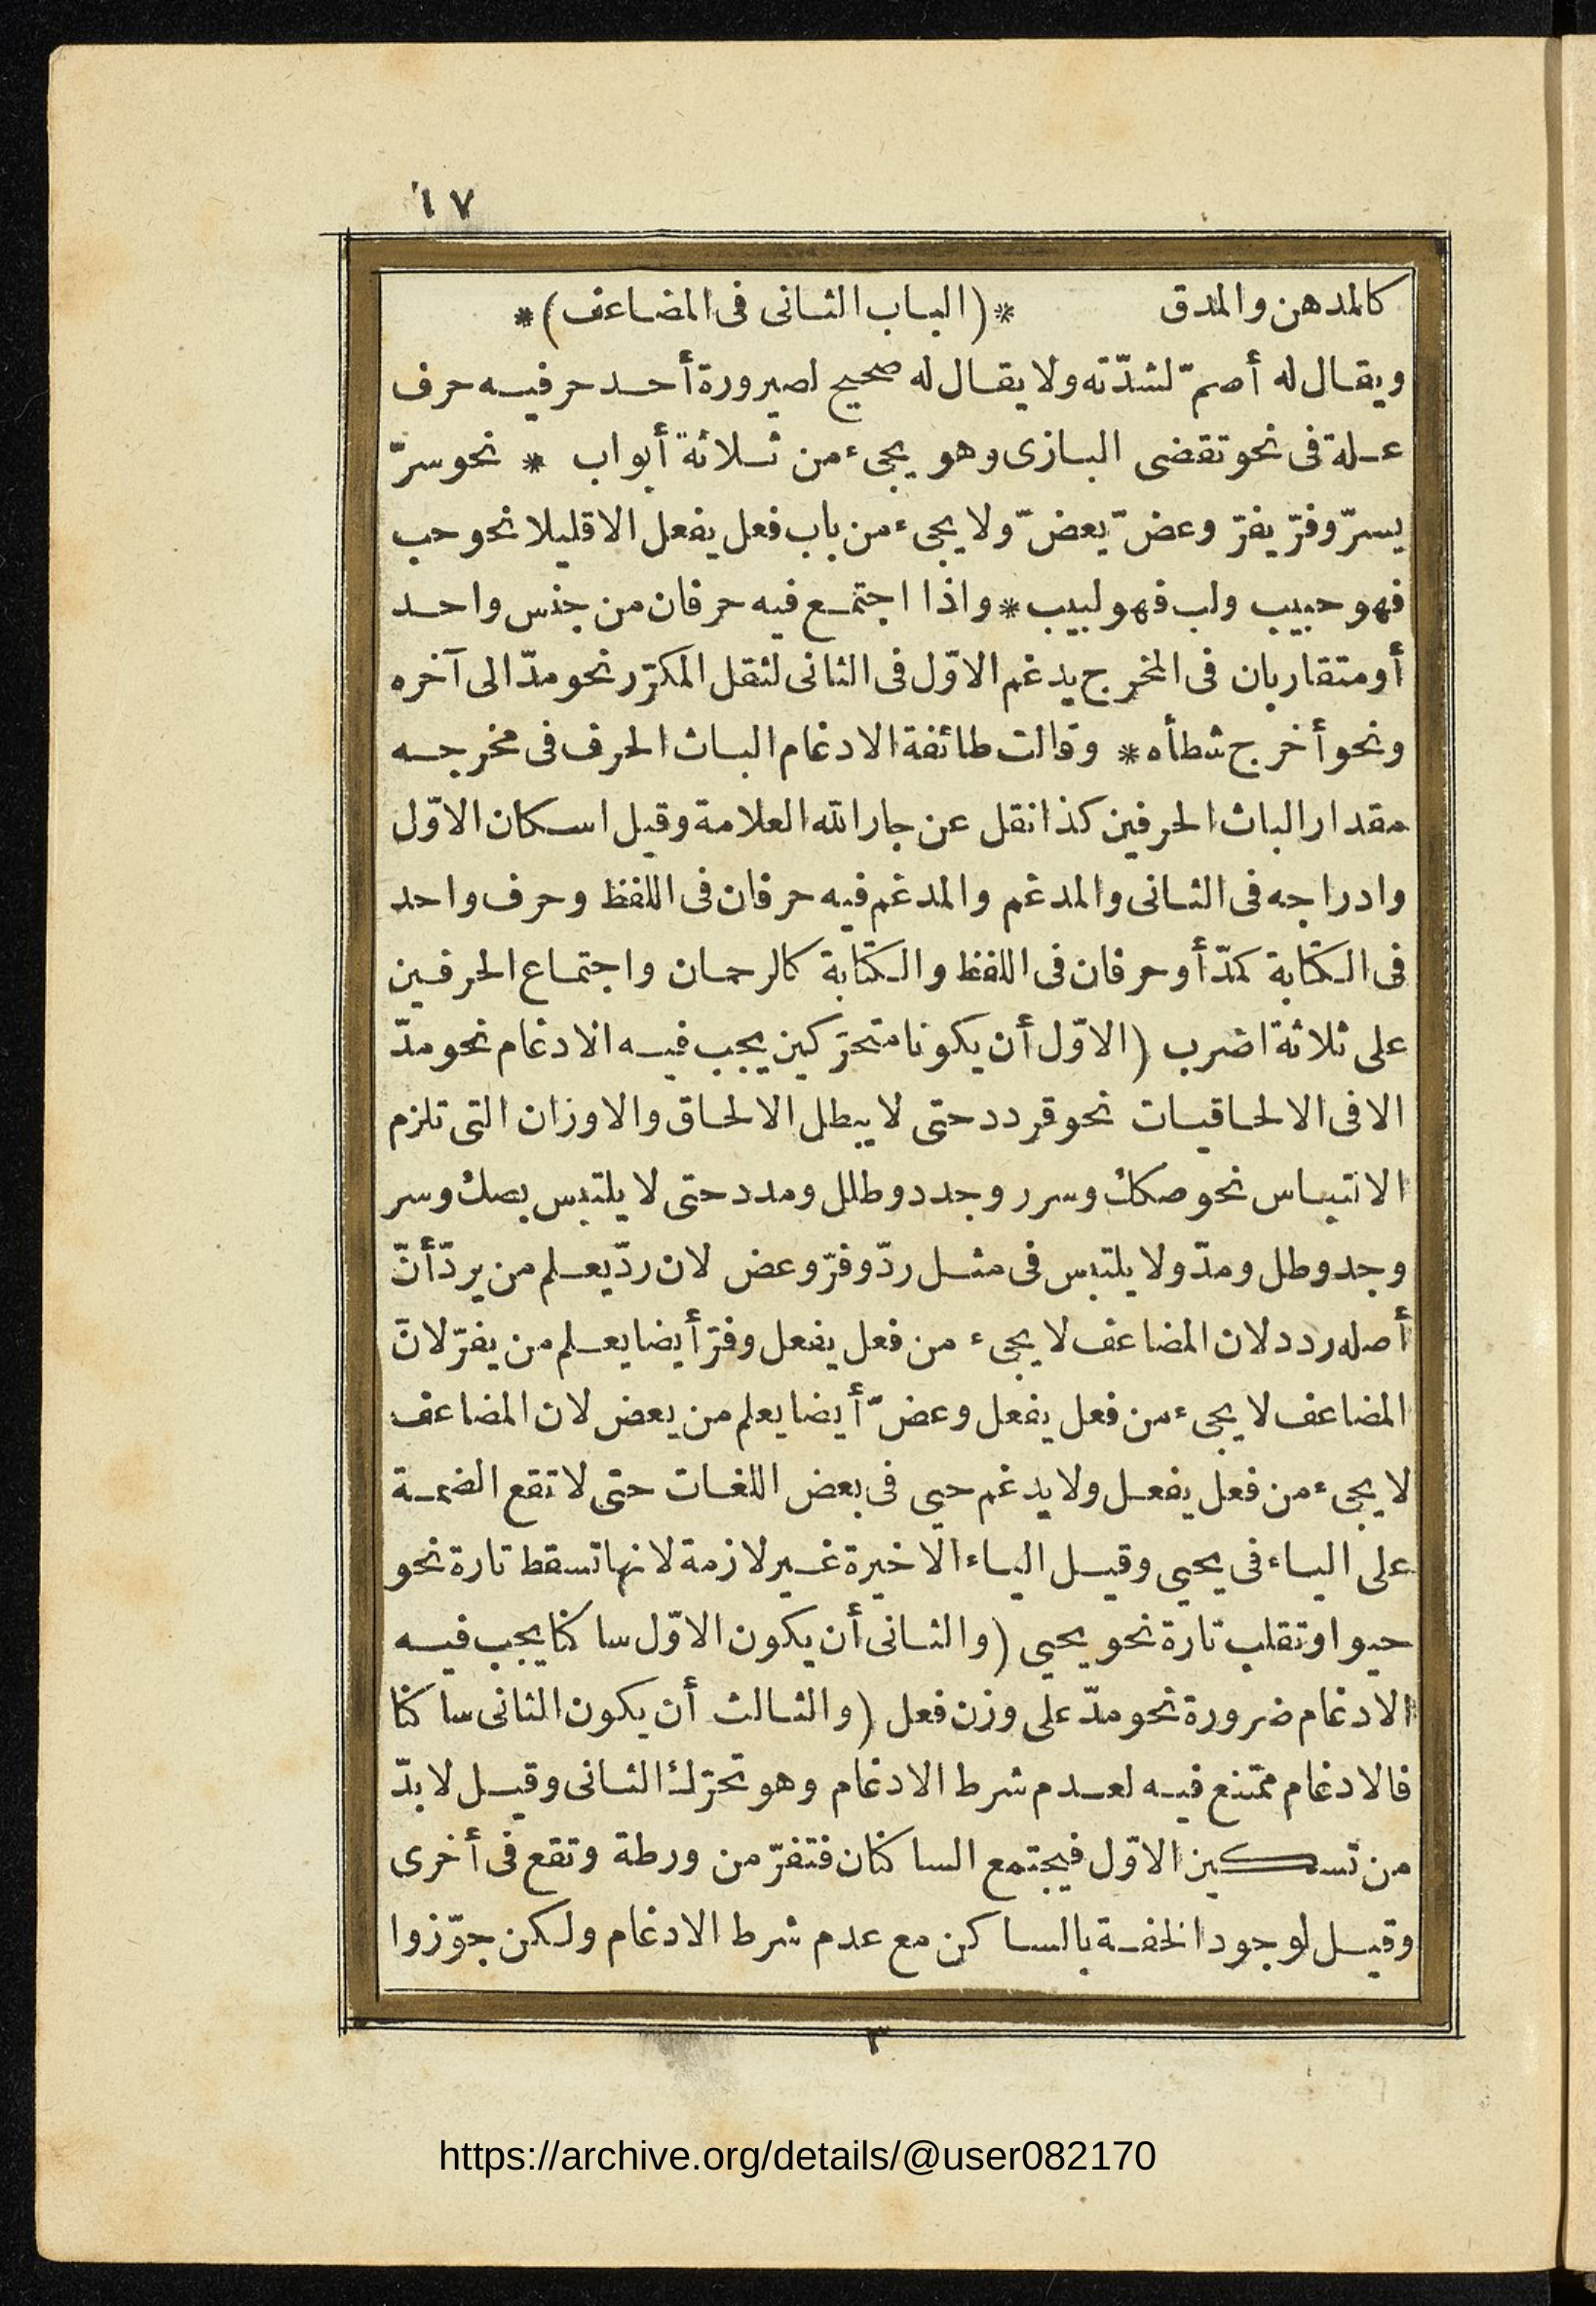 ١٧
كالمدهن والمدق *(الباب الثانى فى المضاعف)*
ويقال له أصمّ لشدّته ولا يقال له صحيح لصيرورة أحد حرفيه حرف
علة فى نحو تقضى البازى وهو يجىء من ثلاثة أبواب * نحو سرّ
يسرّ وفرّ يفرّ وعضّ يعضّ ولا يجىء من باب فعل يفعل الا قليلا نحو حب
فهو حبيب ولب فهو لبيب * واذا اجتمع فيه حرفان من جنس واحد
أو متقاربان فى المخرج يدغم الاوّل فى الثانى لثقل المكرّر نحو مدّ الى آخره
ونحو أخرج شطأه * وقالت طائفة الادغام الباث الحرف فى مخرجه
مقدار الباث الحرفين كذا نقل عن جار الله العلامة وقيل اسكان الاوّل
وادراجه فى الثانى والمدغم والمدغم فيه حرفان فى اللفظ وحرف واحد
فى الكتابة كمدّ أو حرفان فى اللفظ والكتابة كالرحمان واجتماع الحرفين
على ثلاثة اضرب (الاوّل أن يكونا متحرّكين يجب فيه الادغام نحو مدّ
الا فى الالحاقيات نحو قردد حتى لا يبطل الالحاق والاوزان التى تلزم
الالتباس نحو صكك وسرر وجدد وطلل ومدد حتى لا يلتبس بصك وسر
وجد وطل ومدّ ولا يلتبس فى مثل ردّ وفرّ وعض لان ردّ يعلم من يردّ أنّ
أصله ردد لان المضاعف لا يجىء من فعل يفعل وفرّ أيضا يعلم من يفرّ لانّ
المضاعف لا يجىء من فعل يفعل وعضّ أيضا يعلم من يعض لان المضاعف
لا يجىء من فعل يفعل ولا يدغم حيى فى بعض اللغات حتى لا تقع الضمة
على الياء فى يحيى وقيل الياء الاخيرة غير لازمة لانها تسقط تارة نحو
حيوا وتقلب تارة نحو يحيى (والثانى أن يكون الاوّل ساكنا يجب فيه
الادغام ضرورة نحو مدّ على وزن فعل (والثالث أن يكون الثانى ساكنا
فالادغام ممتنع فيه لعدم شرط الادغام وهو تحرّك الثانى وقيل لا بدّ
من تسكين الاوّل فيجتمع الساكنان فتفرّ من ورطة وتقع فى أخرى
وقيل لوجود الخفة بالساكن مع عدم شرط الادغام ولكن جوّزوا
٣
https://archive.org/details/@user082170